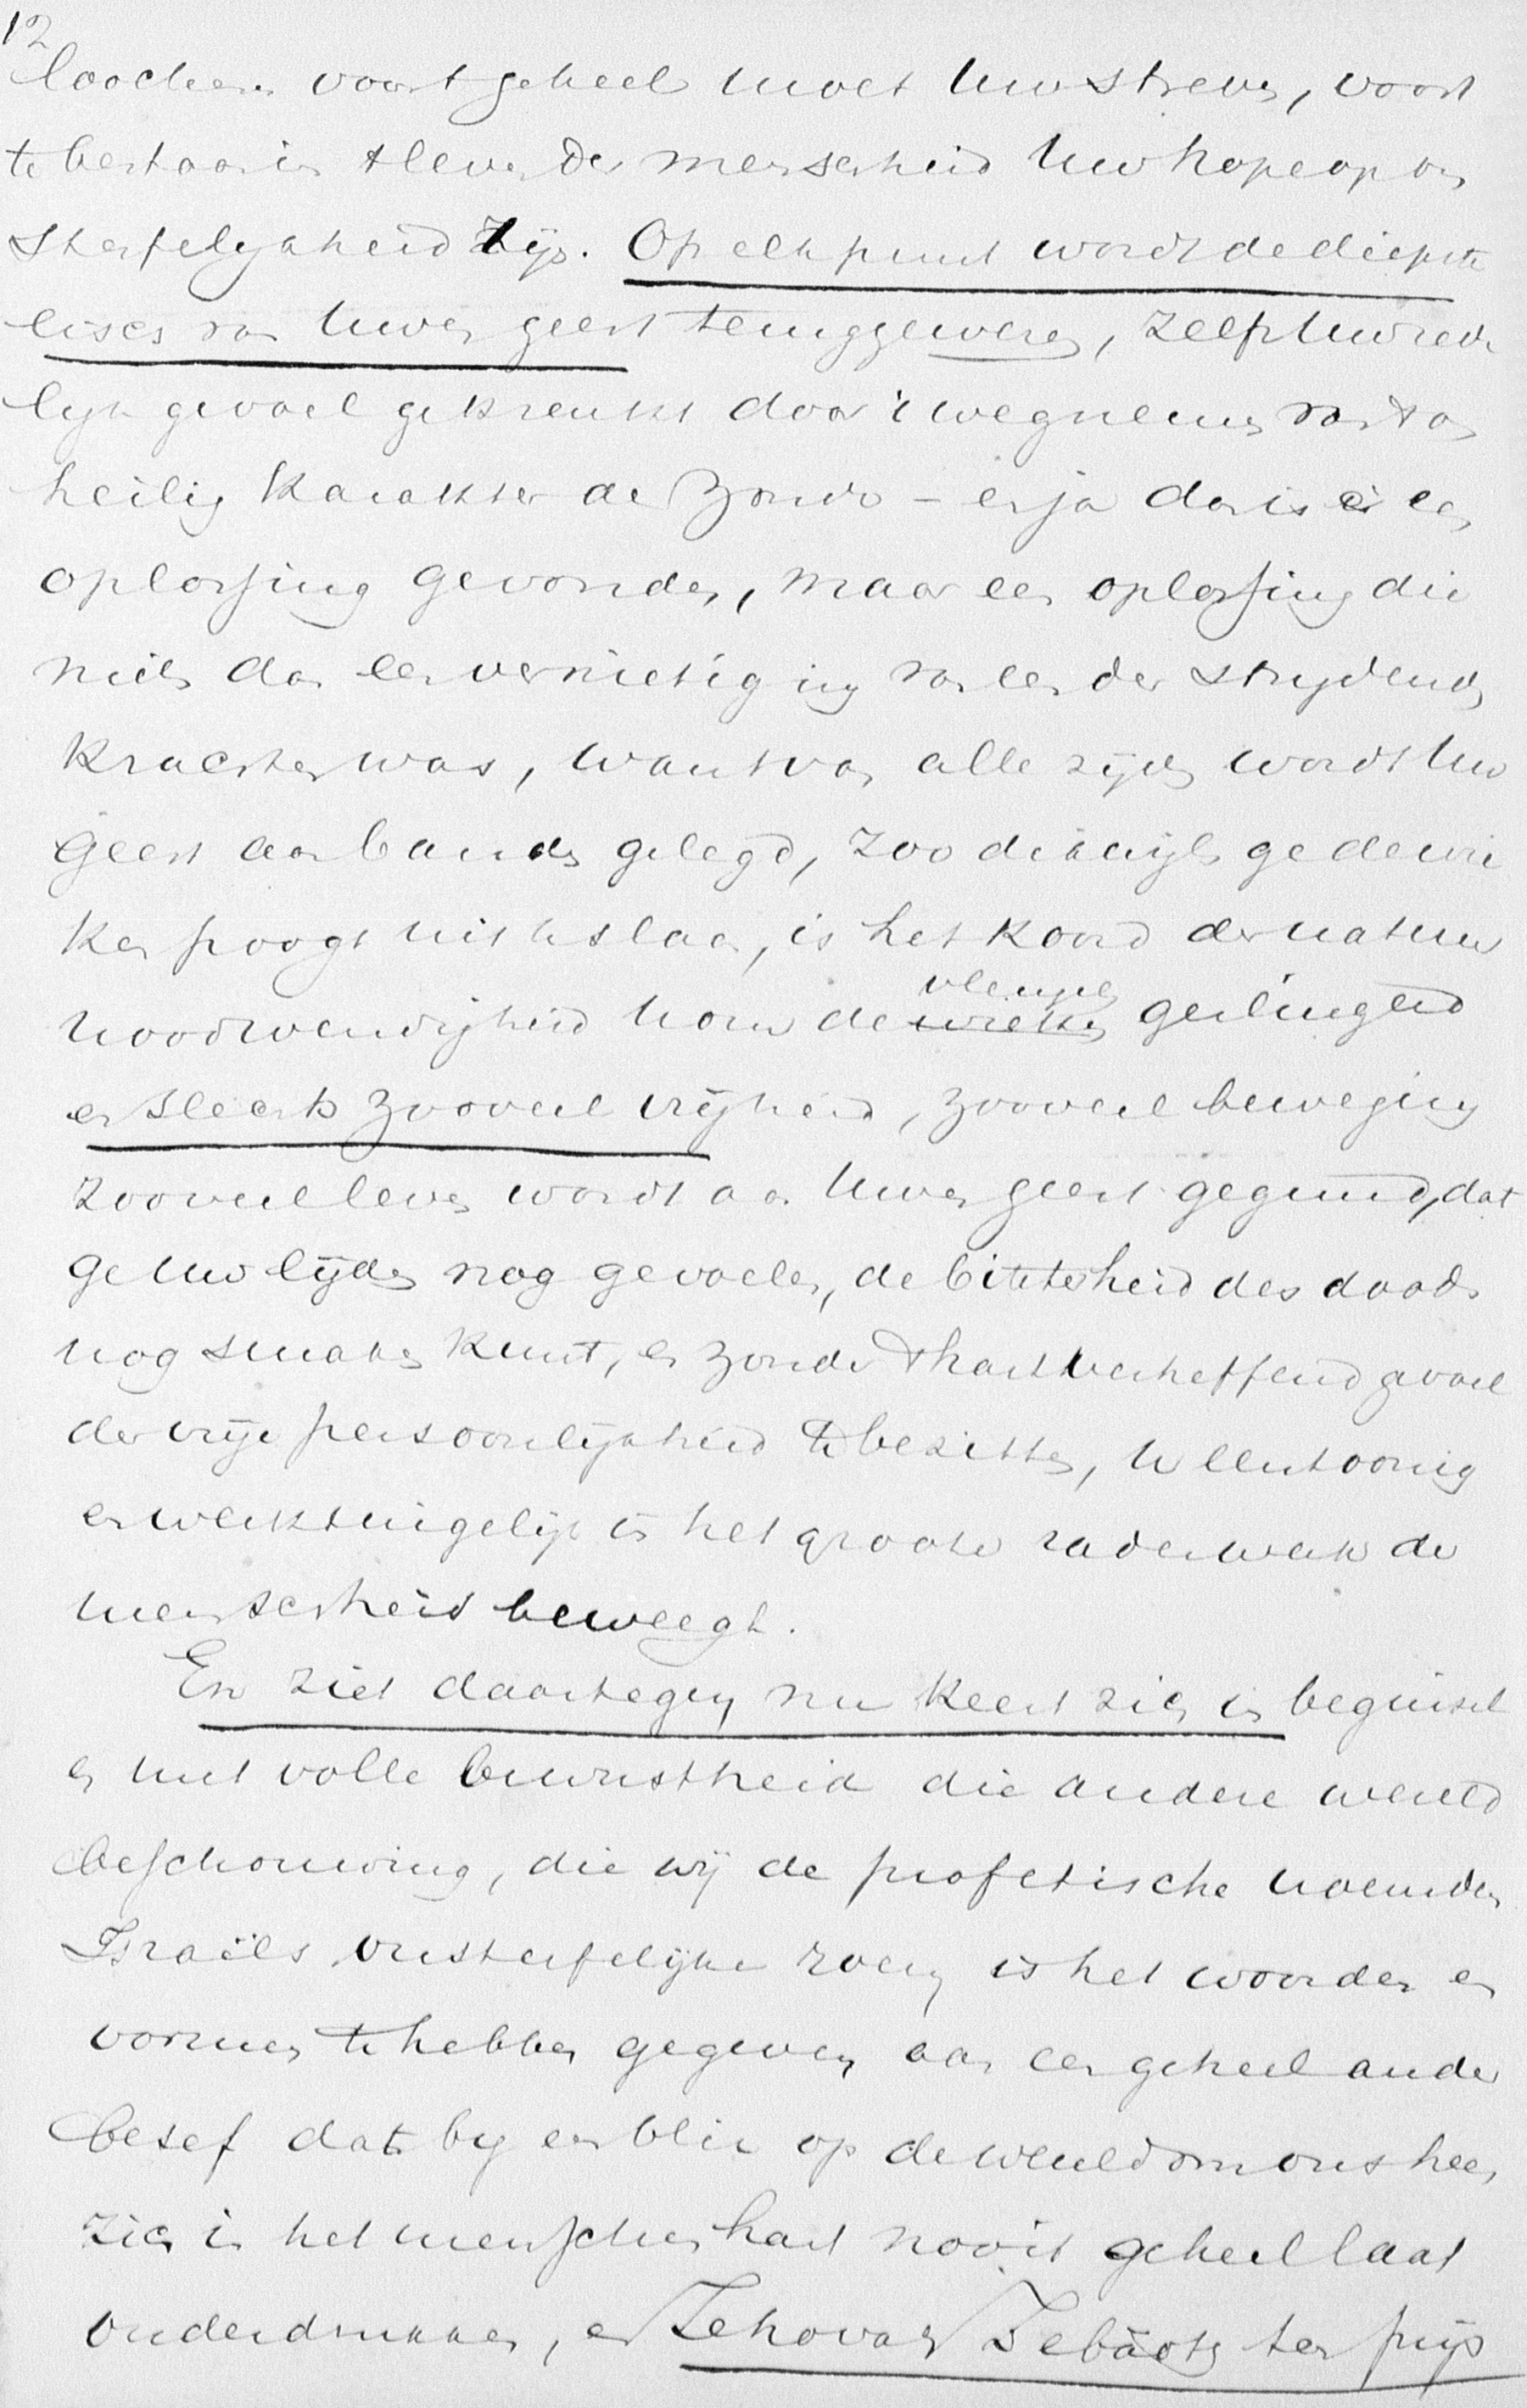 12
loochen voor 't geheel moet Uw streven, voort
te bestaan in 't leven der menschheid Uw hope op on
sterfelykheid zijn. Op elk punt wordt de diepste
eisch van Uwen geest teruggewezen, zelfs Uw rede
lyk gevoel gekrenkt door 't wegnemen van 't on
heilig karakter der zonde – en ja dan is er een
oplossing gevonden, maar een oplossing die
niets dan een vernietiging van een der strydende
krachten was, want van alle zijden wordt Uw
geest aan banden gelegd, zoo dikwijls ge de wie
ken poogt uit te slaan, is het koord der natuur
noodwendigheid U om de wieken vleugels geslingerd
en slechts zooveel vrijheid, zooveel beweging
zooveel leven wordt aan Uwen geest gegund, dat
ge Uw lijden nog gevoelen, de bitterheid des doods
nog smaken kunt, en zonder 't hartverheffend gevoel
der vrije persoonlijkheid te bezitten, U eentoonig
en werktuigelijk in het groote raderwerk der
menschheid beweegt.
En ziet daartegen nu keert zich in beginsel
en met volle bewustheid die andere wereld
beschouwing, die wij de profetische noemden
Israëls onsterfelijke roem is het woorden en
vormen te hebben gegeven aan een geheel ander
besef dat by een blik op de wereld om ons heen
zich in het menschenhart nooit geheel laat
onderdrukken, en Jehovah Zebaoth ten prijs